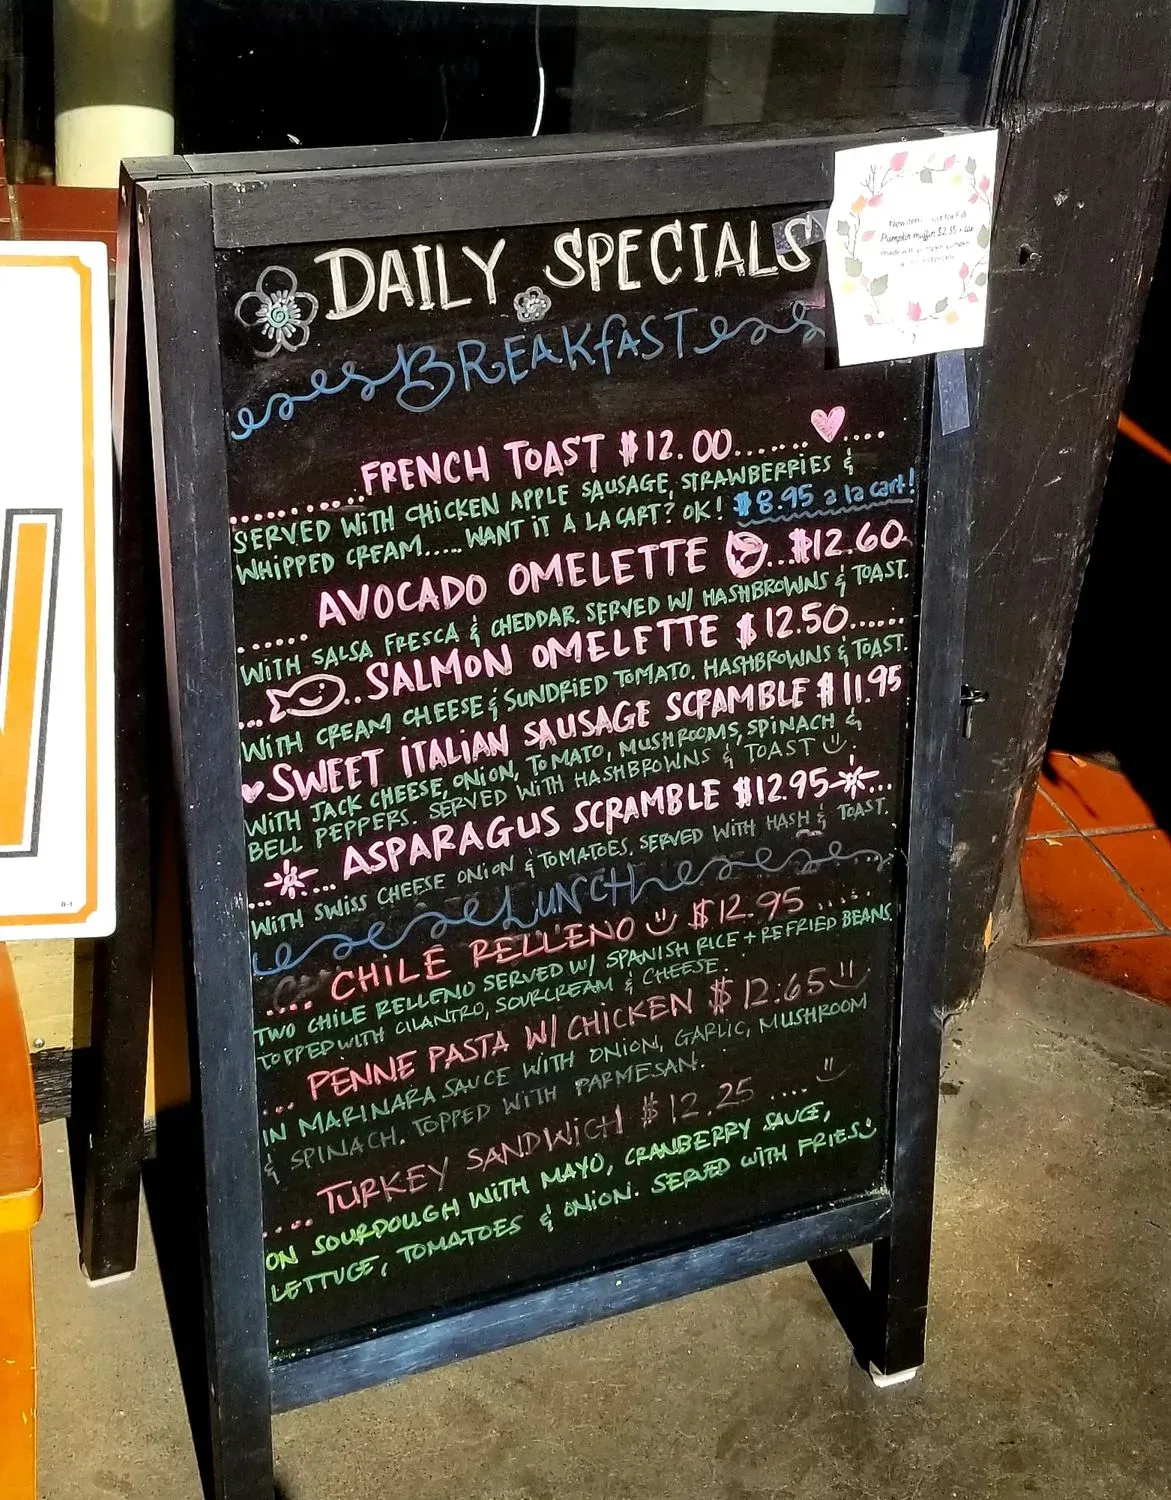 DAILY SPECIALS
BREAKFAST
FRENCH TOAST $12.00
SERVED WITH CHICKEN APPLE SAUSAGE, STRAWBERRIES &
WHIPPED CREAM..... WANT IT A LA CART? OK! $8.95 a la cart!
AVOCADO OMELETTE ...$12.60
WITH SALSA FRESCA & CHEDDAR. SERVED W/ HASHBROWNS & TOAST.
SALMON OMELETTE $12.50
WITH CREAM CHEESE & SUNDRIED TOMATO. HASHBROWNS & TOAST.
SWEET ITALIAN SAUSAGE SCRAMBLE $11.95
WITH JACK CHEESE, ONION, TOMATO, MUSHROOMS, SPINACH &
BELL PEPPERS. SERVED WITH HASHBROWNS & TOAST
ASPARAGUS SCRAMBLE $12.95
WITH SWISS CHEESE ONION & TOMATOES. SERVED WITH HASH & TOAST.
LUNCH
CHILE RELLENO $12.95
TWO CHILE RELLENO SERVED W/ SPANISH RICE + REFRIED BEANS
TOPPED WITH CILANTRO, SOURCREAM & CHEESE
PENNE PASTA W/ CHICKEN $12.65
IN MARINARA SAUCE WITH ONION, GARLIC, MUSHROOM
& SPINACH. TOPPED WITH PARMESAN.
TURKEY SANDWICH $12.25
ON SOURDOUGH WITH MAYO, CRANBERRY SAUCE,
LETTUCE, TOMATOES & ONION. SERVED WITH FRIES
Pumpkin muffin $2.95 + tax